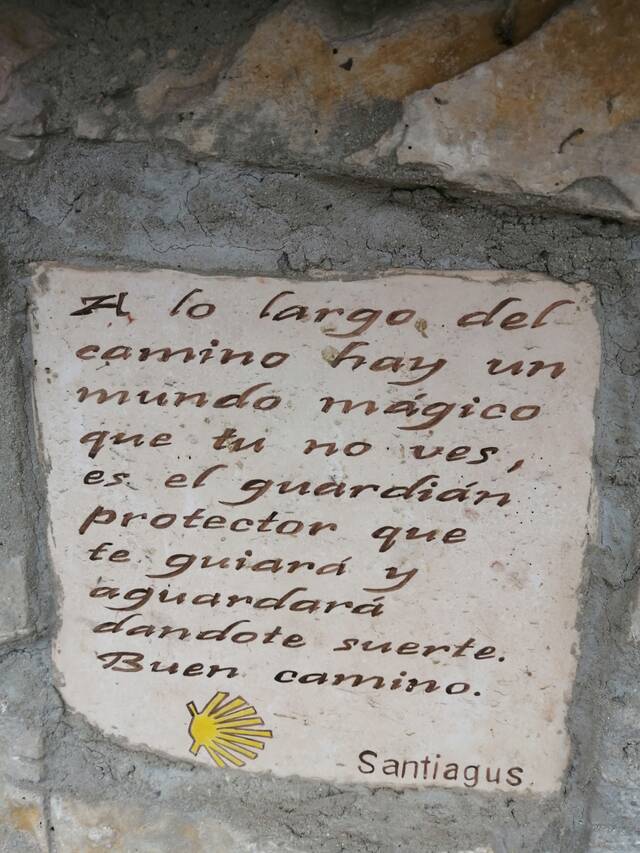 A lo largo del
camino hay un
mundo mágico
que tu no ves,
es el guardián
protector que
te guiará y
aguardará
dandote suerte.
Buen camino.
Santiagus